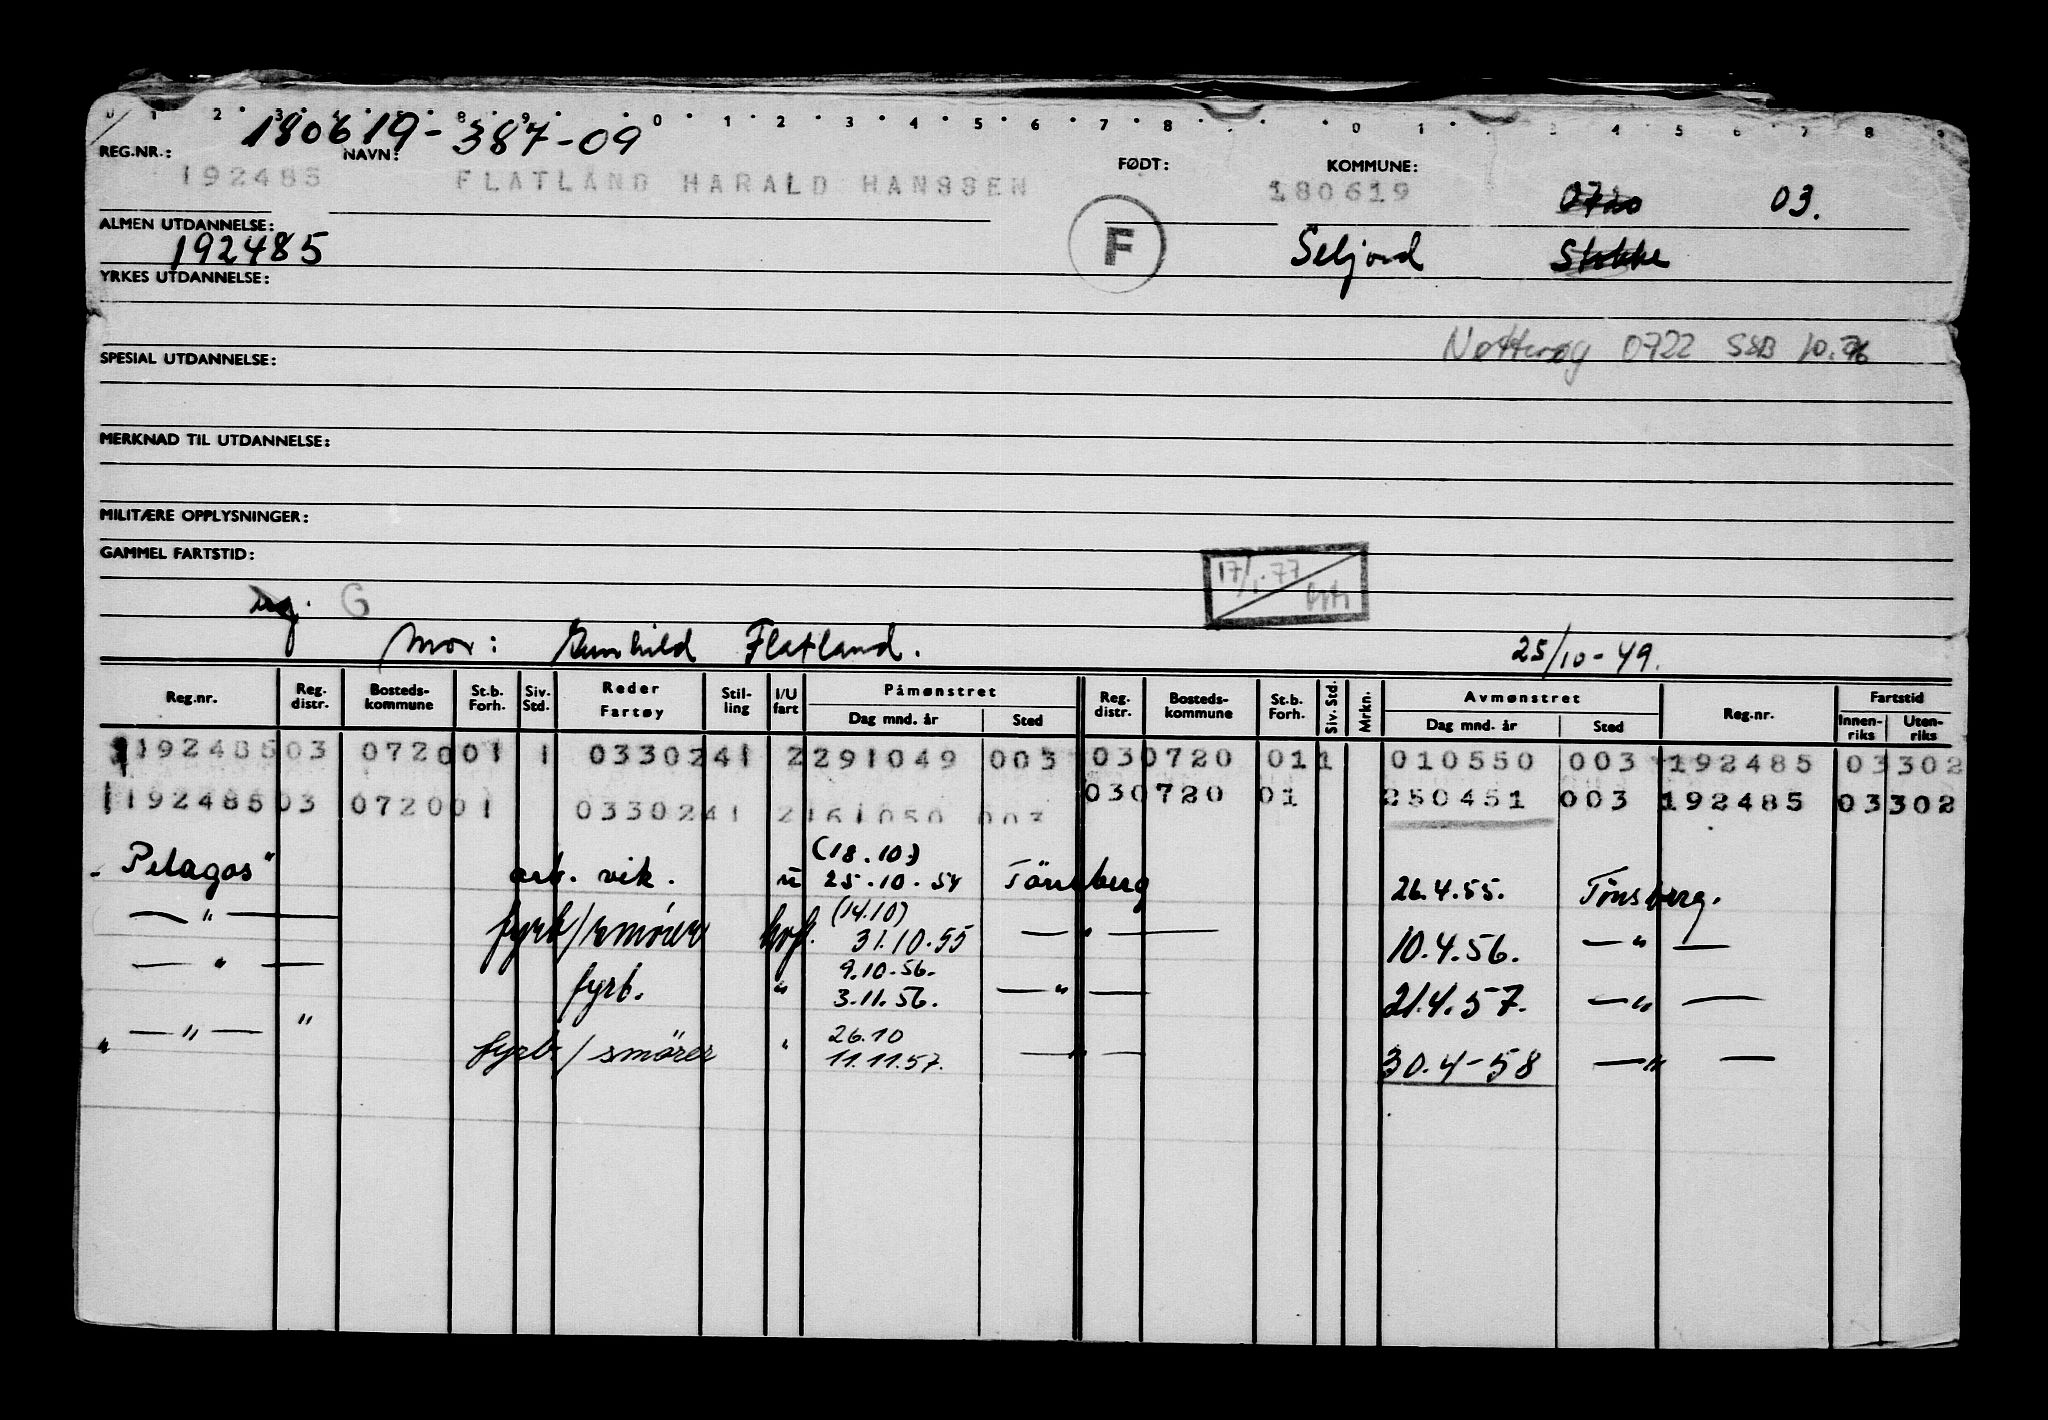 180619-387-09
REG.NR.: NAVN: FØDT: KOMMUNE:
192485 FLATLAND HARALD HANSSEN 180619 0720 03.
ALMEN UTDANNELSE:
192485 F Seljord Stokke
YRKES UTDANNELSE:
Nøtterøy 0722 SSB 10.76
SPESIAL UTDANNELSE:
MERKNAD TIL UTDANNELSE:
MILITÆRE OPPLYSNINGER:
GAMMEL FARTSTID:
17/1.77
G
Mor: Gunhild Flatland. 25/10-49.
Reg.nr. Reg. distr. Bosteds-kommune St.b. Forh. Siv. Std. Reder Fartøy Stil-ling I/U fart Påmønstret Dag mnd. år Sted Reg. distr. Bosteds-kommune St.b. Forh. Siv. Std. Mrkn. Avmønstret Dag mnd. år Sted Reg.nr. Fartstid Innen-riks Uten-riks
119248503 072001 1 0330241 2291049 003 030720 011 010550 003 192485 03302
119248503 072001 0330241 2161050 003 030720 01 250451 003 192485 03302
(18.10)
"Pelagos" arb. vik. u 25.10.54 Tönsberg 26.4.55. Tönsberg.
(14.10)
— " — fyrb/smører hvf. 31.10.55 — " — 10.4.56. — " —
9.10.56.
— " — fyrb. " 3.11.56. — " — 21.4.57. — " —
26.10
" — " — " fyrb/smörer " 11.11.57. — " — 30.4-58 — " —